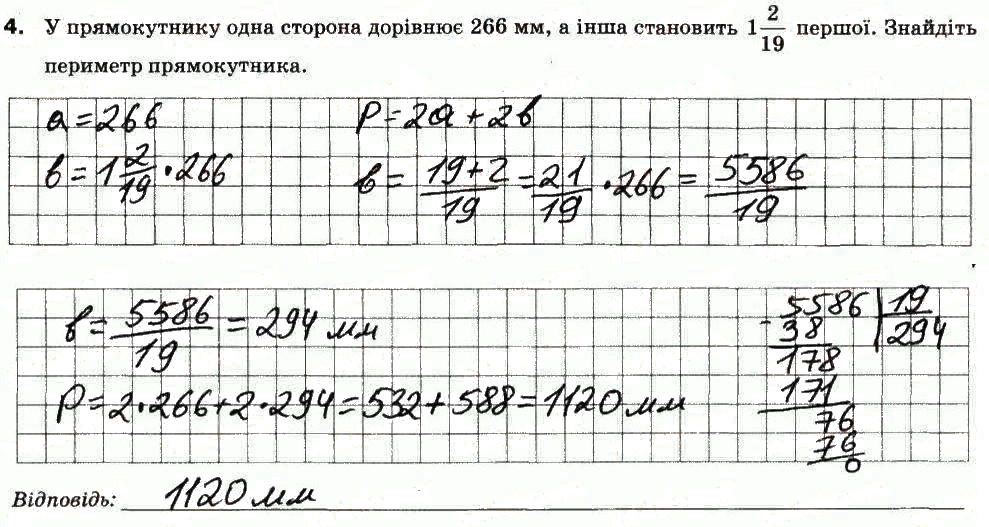 4. У прямокутнику одна сторона дорівнює 266 мм, а інша становить 1 2/19 першої. Знайдіть
периметр прямокутника.
a = 266
P = 2a + 2b
b = 1 2/19 · 266
b = (19+2)/19 = 21/19 · 266 = 5586/19
b = 5586/19 = 294 мм
P = 2·266+2·294 = 532 + 588 = 1120 мм
5586 | 19
- 38 | 294
178
171
76
76
0
Відповідь: 1120 мм